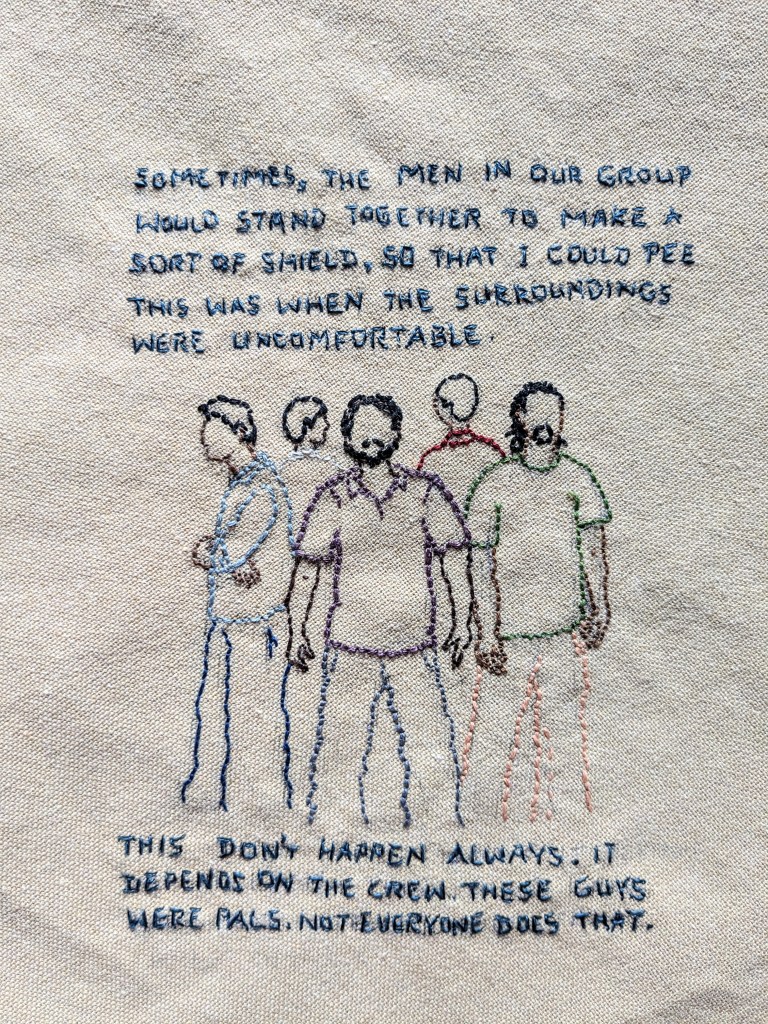 SOMETIMES, THE MEN IN OUR GROUP
WOULD STAND TOGETHER TO MAKE A
SORT OF SHIELD, SO THAT I COULD PEE
THIS WAS WHEN THE SURROUNDINGS
WERE UNCOMFORTABLE.
THIS DON'T HAPPEN ALWAYS. IT
DEPENDS ON THE CREW. THESE GUYS
WERE PALS. NOT EVERYONE DOES THAT.